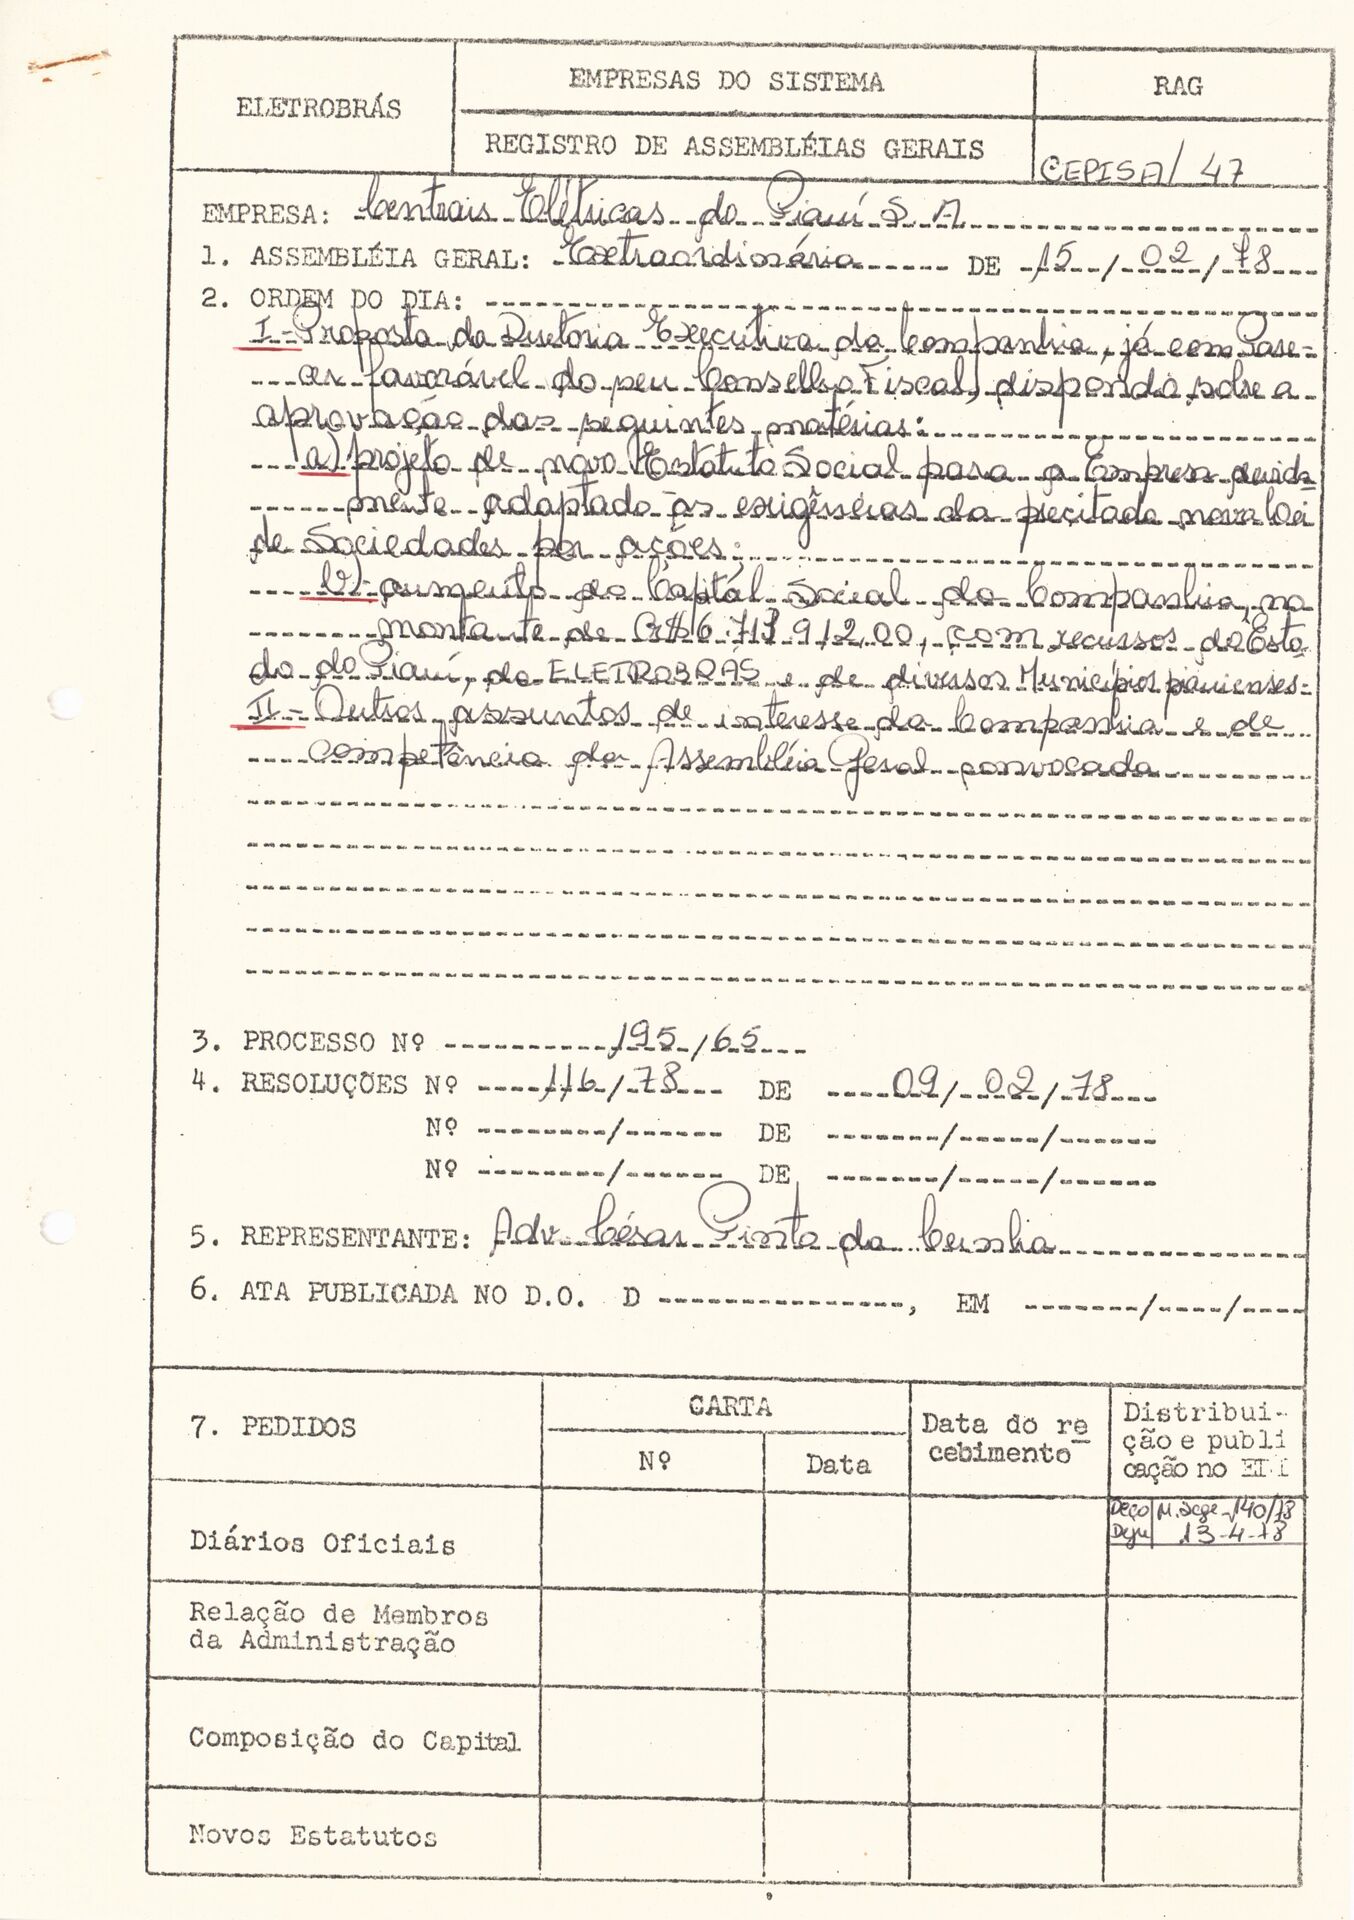 ELETROBRÁS
EMPRESAS DO SISTEMA
REGISTRO DE ASSEMBLÉIAS GERAIS
RAG
CEPISA/ 47
EMPRESA: Centrais Elétricas do Piauí S.A.
1. ASSEMBLÉIA GERAL: Extraordinária DE 15/02/78
2. ORDEM DO DIA:
I - Proposta da Diretoria Executiva da Companhia, já com Pare-
cer favorável do seu Conselho Fiscal, dispondo sobre a
aprovação das seguintes matérias:
a) projeto de novo Estatuto Social para a Empresa devida-
mente adaptado às exigências da precitada nova Lei
de Sociedades por ações;
b) aumento do Capital Social da Companhia, no
montante de Cr$ 6.713.912,00, com recursos do Esta-
do do Piauí, da ELETROBRÁS e de diversos Municípios piauienses.
II - Outros assuntos de interesse da Companhia e de
competência da Assembléia Geral convocada
3. PROCESSO Nº 195/65
4. RESOLUÇÕES Nº 116/78 DE 09/02/78
Nº / DE / /
Nº / DE / /
5. REPRESENTANTE: Adv. César Pinto da Cunha
6. ATA PUBLICADA NO D.O. D , EM / /
7. PEDIDOS
CARTA
Nº
Data
Data do re
cebimento
Distribui-
ção e publi
cação no
M. 140/78
13-4-78
Diários Oficiais
Relação de Membros
da Administração
Composição do Capital
Novos Estatutos